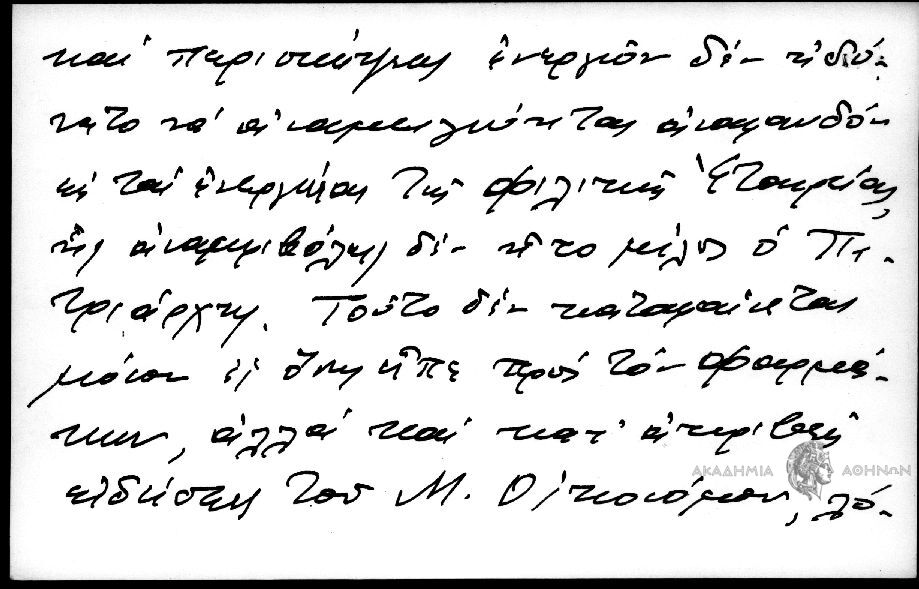 καί περισκέψεως ἐνεργῶν δέν ἠδύ-
νατο νά ἀναμειγνύεται ἀναφανδόν
εἰς τάς ἐνεργείας τῆς φιλικῆς Ἑταιρείας,
ἧς ἀναμφιβόλως δέν ἦτο μέλος ὁ Πα-
τριάρχης. Τοῦτο δέν καταφαίνεται
μόνον ἐξ ὅσων εἶπε πρός τόν Φαρμά-
κην, ἀλλά καί κατ' ἀκριβεῖς
εἰδήσεις τοῦ Μ. Οἰκονόμου, λό-
ΑΚΑΔΗΜΙΑ ΑΘΗΝΩΝ